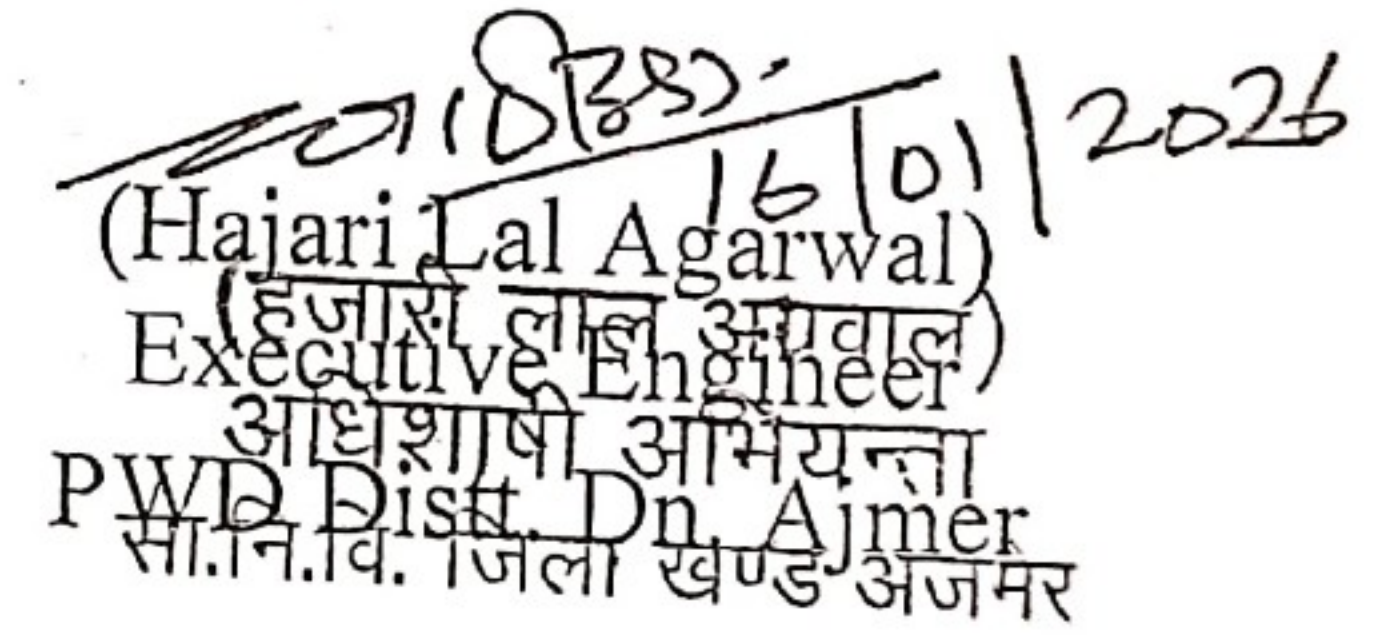 16/01/2026
(Hajari Lal Agarwal)
(हजारी लाल अग्रवाल)
Executive Engineer
अधिशाषी अभियन्ता
PWD Distt. Dn. Ajmer
सा.नि.वि. जिला खण्ड अजमेर